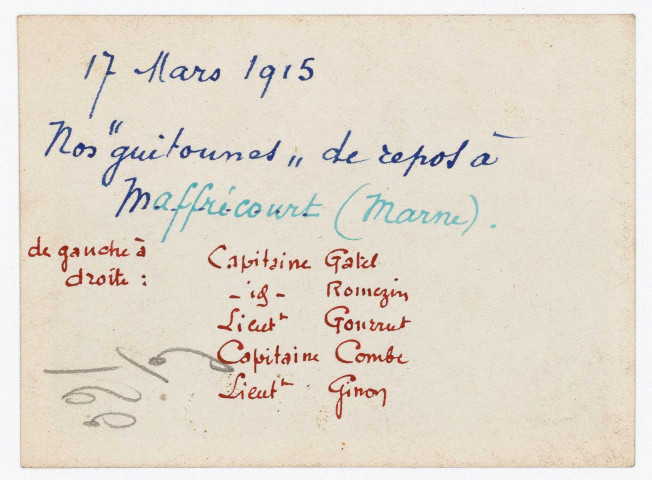 17 Mars 1915
Nos "guitounes" de repos à
Maffrécourt (Marne).
de gauche à
droite :
Capitaine Gatel
- id - Romezin
Lieutt Gourrut
Capitaine Combe
Lieutt Ginon